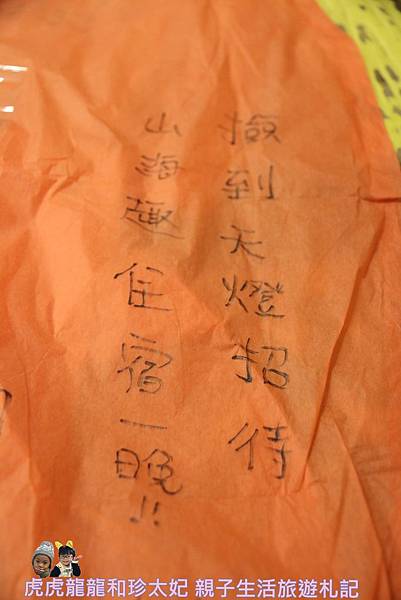 撿到天燈招待
山海趣住宿一晚!!
虎虎龍龍和珍太妃 親子生活旅遊札記